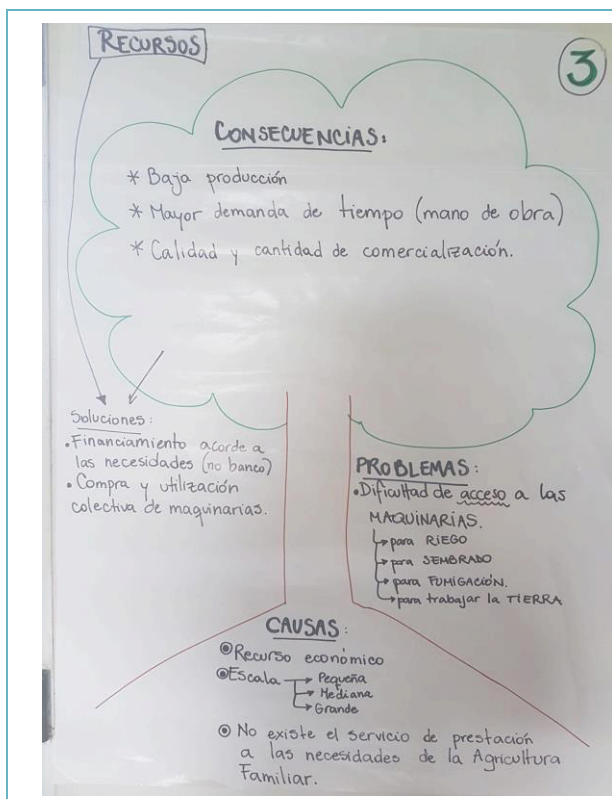 RECURSOS
3
CONSECUENCIAS:
* Baja producción
* Mayor demanda de tiempo (mano de obra)
* Calidad y cantidad de comercialización.
Soluciones:
• Financiamiento acorde a
las necesidades (no banco)
• Compra y utilización
colectiva de maquinarias.
PROBLEMAS:
• Dificultad de acceso a las
MAQUINARIAS.
→ para RIEGO
→ para SEMBRADO
→ para FUMIGACIÓN.
→ para trabajar la TIERRA
CAUSAS:
◉ Recurso económico
◉ Escala → Pequeña
→ Mediana
→ Grande
◉ No existe el servicio de prestación
a las necesidades de la Agricultura
Familiar.